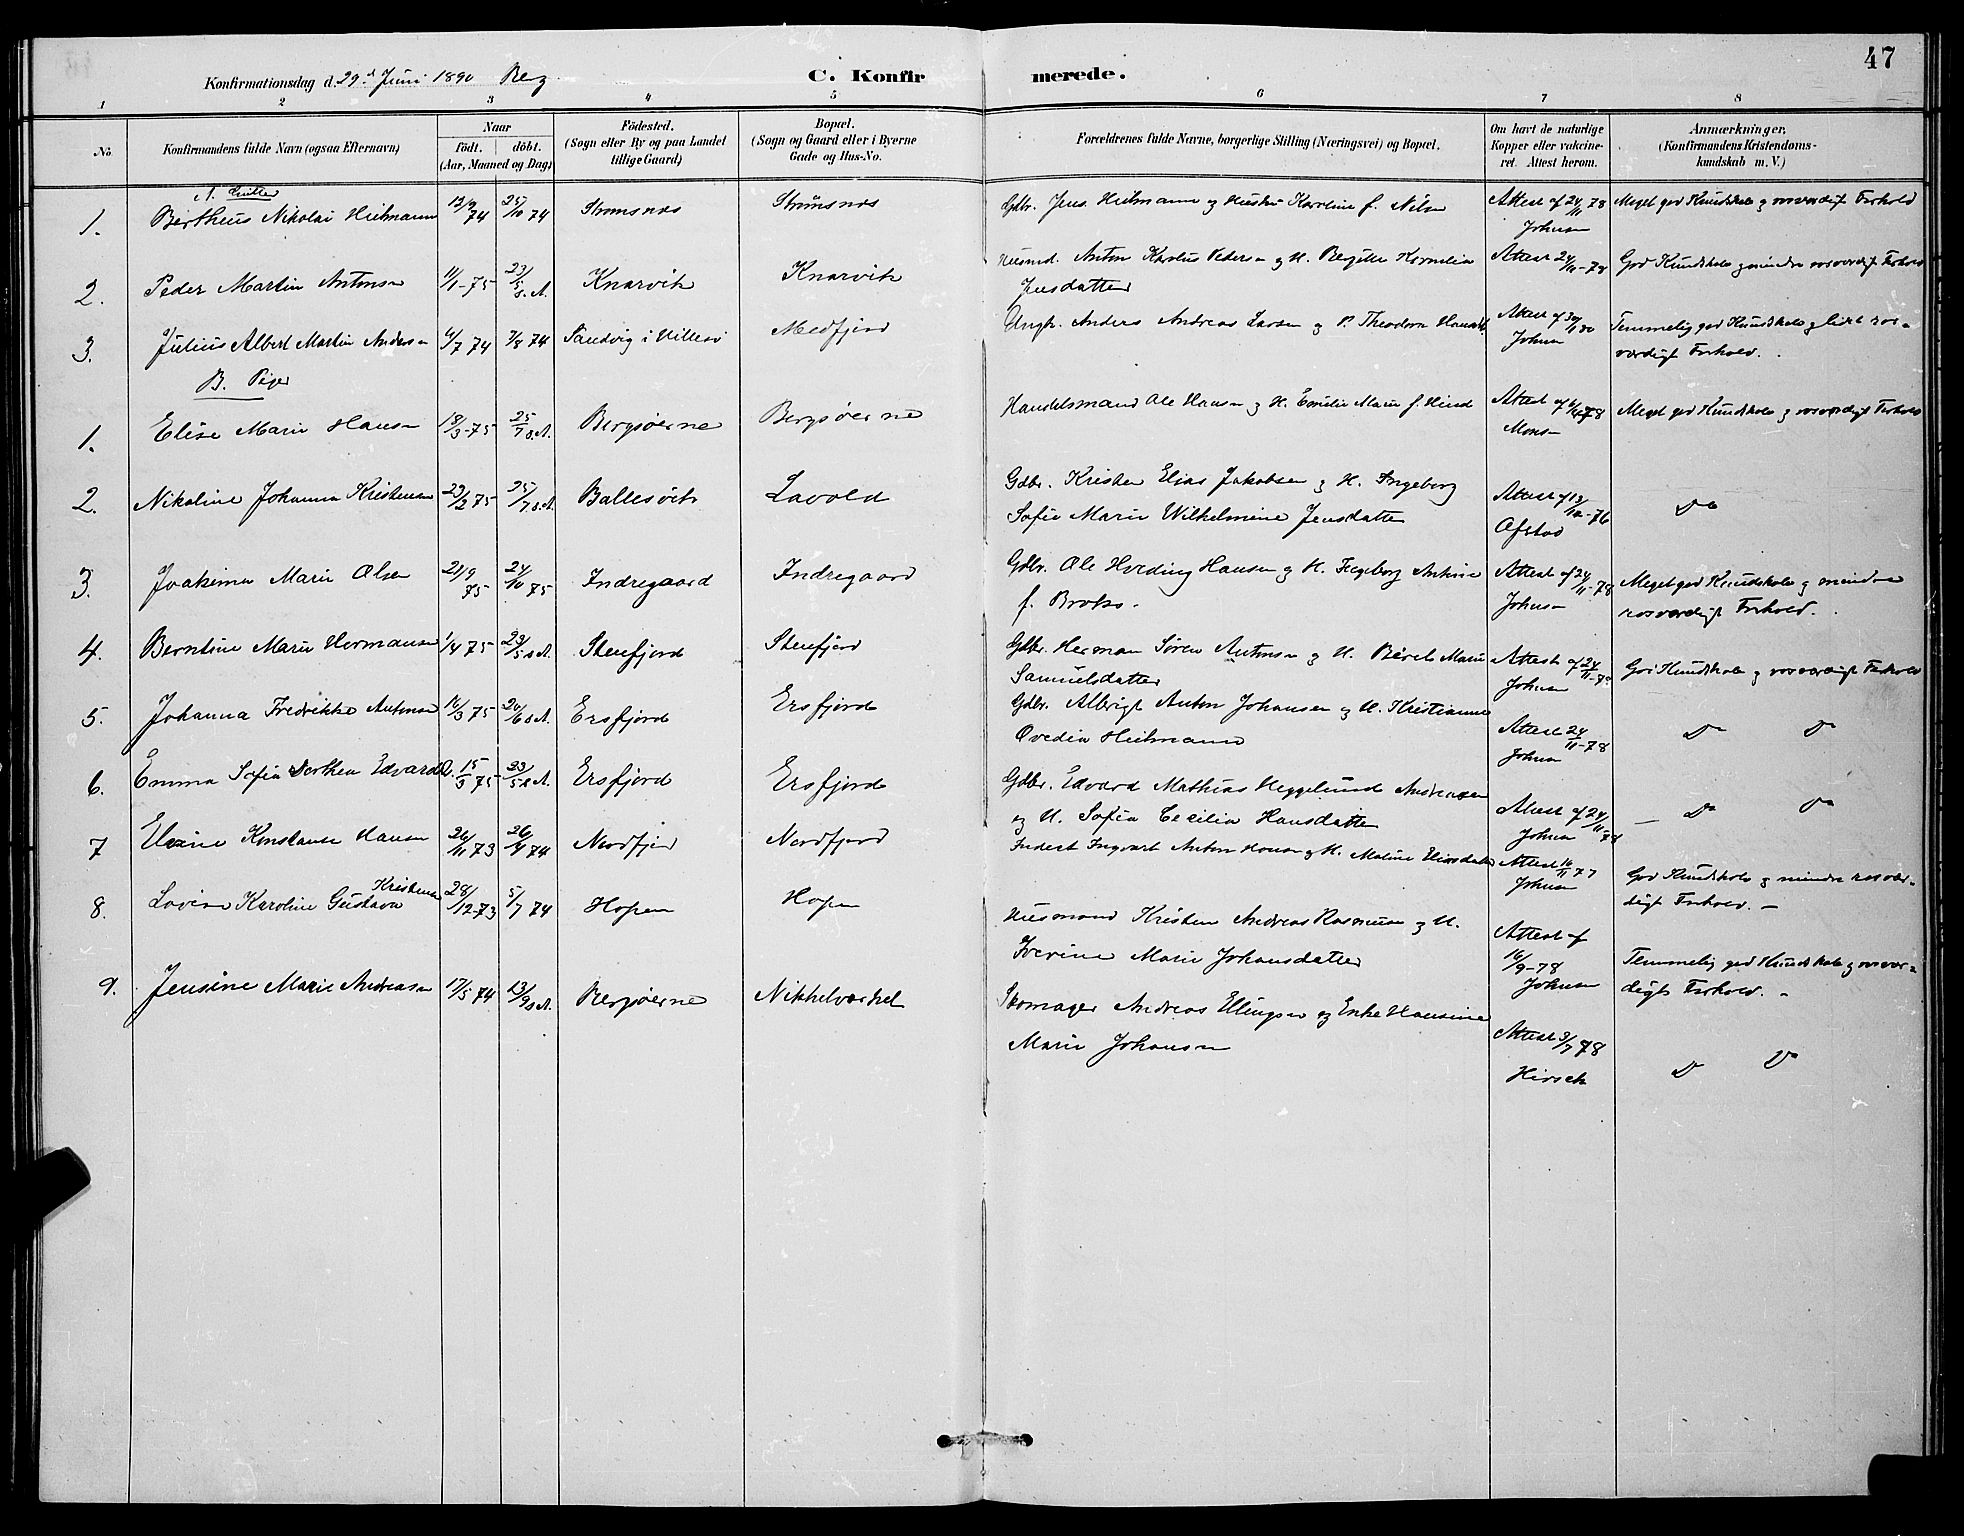 47
Konfirmationsdag d. 29d Juni 1890 Berg C. Konfirmerede.
1 2 3 4 5 6 7 8
No. Konfirmandens fulde Navn (ogsaa Efternavn) Naar födt. döbt. (Aar, Maaned og Dag) Födested. (Sogn eller By og paa Landet tillige Gaard) Bopæl. (Sogn og Gaard eller i Byerne Gade og Hus-No. Forældrenes fulde Navne, borgerlige Stilling (Næringsvei) og Bopæl. Om havt de naturlige Kopper eller vakcineret. Attest herom. Anmærkninger. (Konfirmandens Kristendomskundskab m. V.)
A. Gutter
1. Bertheus Nikolai Heitmann 13/9 74 25/10 74 Strømsnæs Strømsnæs Gdbr. Jens Heitmann og Hustru Karoline f. Nilsen Attest af 24/11 78 Johnsen Meget god Kundskab og rosværdigt Forhold
2. Peder Martin Antonsen 11/1-75 23/5 s.A. Knarvik Knarvik Husmd. Anton Karolius Pedersen og H. Bergitte Kornelia Jensdatter Attest 24/11-78 God Kundskab og mindre rosværdigt Forhold
3. Julius Albert Martin Andersen 4/7 74 7/8 74 Sandvig i Hillesø Medfjord Ungk. Anders Andreas Larsen og P. Theodora Hansdt. Attest af 30/1 80 Johnsen Temmelig god Kundskab og lidet rosværdigt Forhold.
B. Piger
1. Elise Marie Hansen 18/3-75 25/7 s.A. Bergsøerne Bergsøerne Handelsmand Ole Hansen og H. Emilie Marie f. Hind Attest af 78 Monsen Meget god Kundskab og rosværdigt Forhold
2. Nikoline Johanna Kristensen 23/2 75 25/7 s.A. Ballesvik Lavold Gdbr. Kristen Elias Jakobsen og H. Ingeborg Sofie Marie Wilhelmine Jensdatter Attest af 13/12-76 Ofstad Do
3. Joakima Marie Olsen 21/9 75 24/10 75 Indregaard Indregaard Gdbr. Ole Hveding Hansen og H. Ingeborg Antine f. Broks. Attest af 24/11-78 Johnsen Meget god Kundskab og mindre rosværdigt Forhold.
4. Berntine Marie Hermansen 1/4 75 23/5 s.A. Stenfjord Stenfjord Gdbr. Herman Søren Antonsen og H. Berel Marie Samuelsdatter Attest af 24/11-78 Johnsen God Kundskab og rosværdigt Forhold
5. Johanna Fredrikke Antonsen 16/3 75 20/6 s.A. Ersfjord Ersfjord Gdbr. Albrigt Anton Johansen og H. Kristianne Ovedia Heitmann Attest 24/11-78 Johnsen Do Do
6. Emma Sofia Dorthea Edvards. 15/3 75 23/5 s.A. Ersfjord Ersfjord Gdbr. Edvard Mathias Heggelund Andreasen og H. Sofia Cecilia Hansdatter Attest af 24/11-78 Johnsen Do Do
7 Elvine Konstanse Hansen 26/11 73 26/4 74 Nordfjord Nordfjord Inderst Ingvart Anton Hansen og H. Maline Eliasdatter Attest 16/11 77 Johnsen God Kundskab og mindre rosværdigt Forhold. —
8. Lovise Karoline Gustava Kristensen 28/12-73 5/7 74 Hopen Hopen Husmand Kristen Andreas Rasmusen og H. Iverine Marie Johansdatter Attest af 16/9-78 Johnsen Temmelig god Kundskab og rosværdigt Forhold. -
9. Jensine Marie Andreasen 17/5 74 13/9 s.A. Bergsøerne Nikkelværket Skomager Andreas Ellingsen og Enke Hansine Marie Johansen Attest 3/7 78 Hirsch Do Do